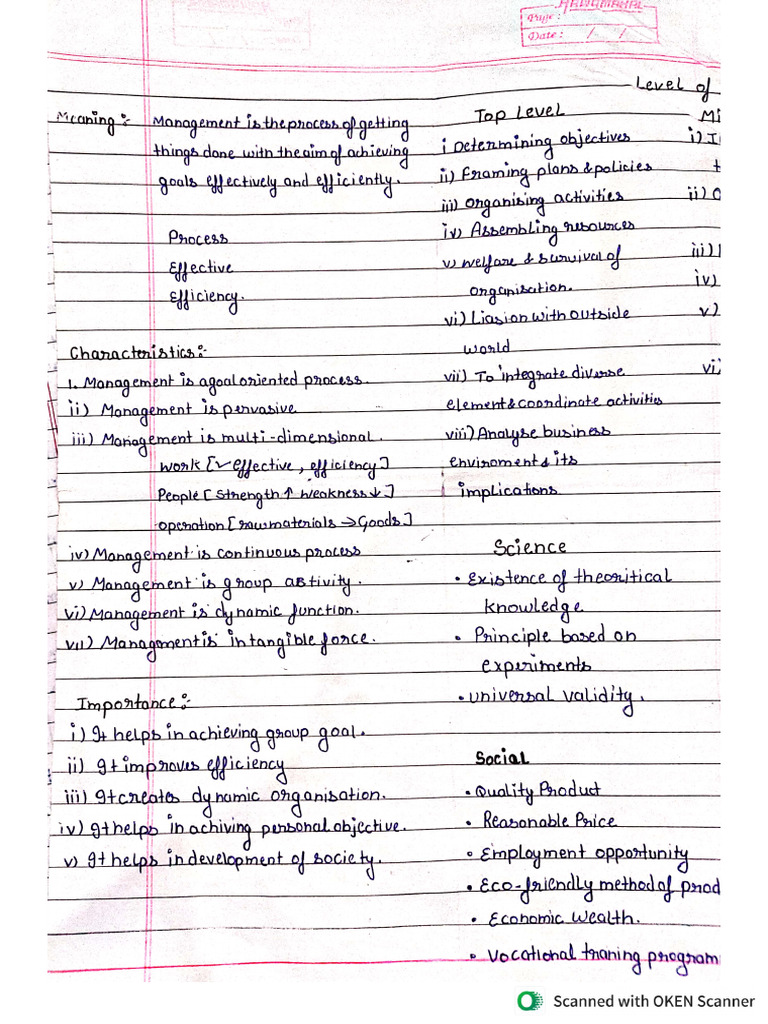 HAWAMAHAL
Page:
Date: / /
Level of
Meaning:- Management is the process of getting
things done with the aim of achieving
goals effectively and efficiently.
Process
Effective
Efficiency.
Characteristics:-
1. Management is a goal oriented process.
ii) Management is pervasive
iii) Management is multi-dimensional.
work [✓ effective, efficiency]
People [Strength ↑ Weakness ↓]
operation [raw materials → Goods]
iv) Management is continuous process
v) Management is group activity.
vi) Management is dynamic function.
vii) Management is intangible force.
Importance:-
i) It helps in achieving group goal.
ii) It improves efficiency
iii) It creates dynamic organisation.
iv) It helps in achiving personal objective.
v) It helps in development of society.
Top Level
i Determining objectives
ii) Framing plans & policies
iii) Organising activities
iv) Assembling resources
v) welfare & survival of
organisation.
vi) Liasion with outside
world
vii) To integrate diverse
element & coordinate activities
viii) Analyse business
enviroment & its
implications
Science
• Existence of theoritical
knowledge
• Principle based on
experiments
• universal validity.
Social
• Quality Product
• Reasonable Price
• Employment opportunity
• Eco-friendly method of prod
• Economic Wealth.
• Vocational traning program
Mi
i) I
ii) O
iii)
iv)
v)
vi)
Scanned with OKEN Scanner